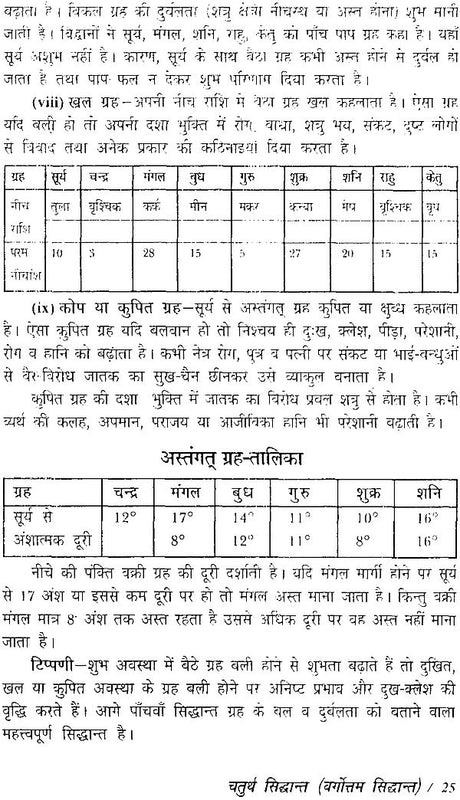 बढ़ाता है। विकल ग्रह की दुर्बलता (शत्रु क्षेत्री नीचस्थ या अस्त होना) शुभ मानी
जाती है। विद्वानों ने सूर्य, मंगल, शनि, राहु, केतु को पाँच पाप ग्रह कहा है। यहाँ
सूर्य अशुभ नहीं है। कारण, सूर्य के साथ बैठा ग्रह कभी अस्त होने से दुर्बल हो
जाता है तथा पाप फल न देकर शुभ परिणाम दिया करता है।
(viii) खल ग्रह–अपनी नीच राशि में बैठा ग्रह खल कहलाता है। ऐसा ग्रह
यदि बली हो तो अपनी दशा भुक्ति में रोग, बाधा, शत्रु भय, संकट, दुष्ट लोगों
से विवाद तथा अनेक प्रकार की कठिनाइयां दिया करता है।
ग्रह सूर्य चन्द्र मंगल बुध गुरु शुक्र शनि राहु केतु
नीच तुला वृश्चिक कर्क मीन मकर कन्या मेष वृश्चिक वृष
राशि
परम 10 3 28 15 5 27 20 15 15
नीचांश
(ix) कोप या कुपित ग्रह–सूर्य से अस्तंगत् ग्रह कुपित या क्षुब्ध कहलाता
है। ऐसा कुपित ग्रह यदि बलवान हो तो निश्चय ही दुःख, क्लेश, पीड़ा, परेशानी,
रोग व हानि को बढ़ाता है। कभी नेत्र रोग, पुत्र व पत्नी पर संकट या भाई-बन्धुओं
से वैर-विरोध जातक का सुख-चैन छीनकर उसे व्याकुल बनाता है।
कुपित ग्रह की दशा भुक्ति में जातक का विरोध प्रबल शत्रु से होता है। कभी
व्यर्थ की कलह, अपमान, पराजय या आजीविका हानि भी परेशानी बढ़ाती है।
अस्तंगत् ग्रह-तालिका
ग्रह चन्द्र मंगल बुध गुरु शुक्र शनि
सूर्य से 12° 17° 14° 11° 10° 16°
अंशात्मक दूरी 8° 12° 11° 8° 16°
नीचे की पंक्ति वक्री ग्रह की दूरी दर्शाती है। यदि मंगल मार्गी होने पर सूर्य
से 17 अंश या इससे कम दूरी पर हो तो मंगल अस्त माना जाता है। किन्तु वक्री
मंगल मात्र 8° अंश तक अस्त रहता है उससे अधिक दूरी पर वह अस्त नहीं माना
जाता है।
टिप्पणी–शुभ अवस्था में बैठे ग्रह बली होने से शुभता बढ़ाते हैं तो दुखित,
खल या कुपित अवस्था के ग्रह बली होने पर अनिष्ट प्रभाव और दुख-क्लेश की
वृद्धि करते हैं। आगे पाँचवाँ सिद्धान्त ग्रह के बल व दुर्बलता को बताने वाला
महत्त्वपूर्ण सिद्धान्त है।
चतुर्थ सिद्धान्त (वर्गोत्तम सिद्धान्त) / 25